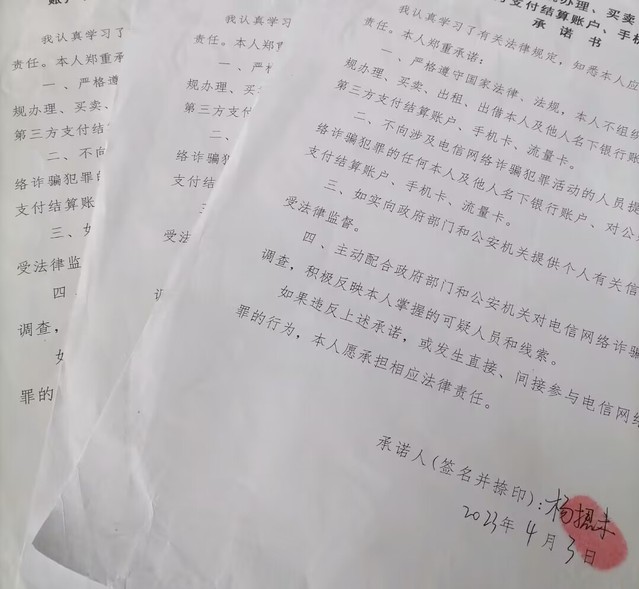 办理、买卖
支付结算账户、手机
承诺书
我认真学习了有关法律规定，知悉本人应
责任。本人郑重承诺：
一、严格遵守国家法律、法规，本人不组织
规办理、买卖、出租、出借本人及他人名下银行账
第三方支付结算账户、手机卡、流量卡。
二、不向涉及电信网络诈骗犯罪活动的人员提
络诈骗犯罪的任何本人及他人名下银行账户、对公
支付结算账户、手机卡、流量卡。
三、如实向政府部门和公安机关提供个人有关信
受法律监督。
四、主动配合政府部门和公安机关对电信网络诈骗
调查，积极反映本人掌握的可疑人员和线索。
如果违反上述承诺，或发生直接、间接参与电信网络
罪的行为，本人愿承担相应法律责任。
承诺人(签名并捺印)：杨
2023年4月3日
我认真学习
责任。本人郑
一、严格
规办理、买卖
第三方支付
二、
络诈骗犯
支付结算
三
受法
我认真学习了
责任。本人郑重
一、严格遵
规办理、买卖、
第三方支付结
二、不向
络诈骗犯罪的
支付结算账
三、如
受法律监督
四、
调查，
如
罪的